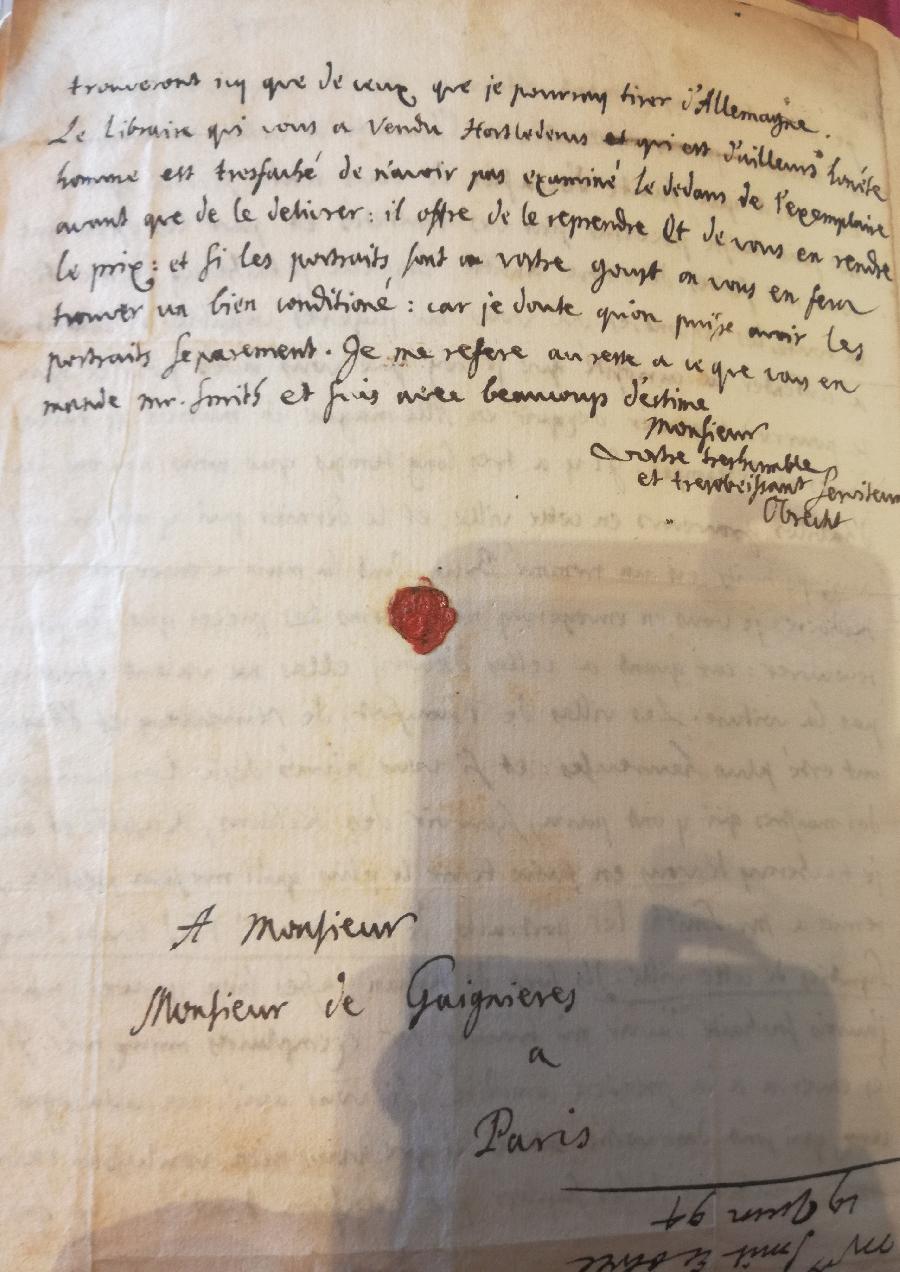 trouveront ny que de ceux que je pourray tirer d'Allemagne.
Le libraire qui vous a vendu Hortlederus et qui est d'ailleurs honéte
homme est tresfaché de n'avoir pas examiné le dedans de l'exemplaire
avant que de le delivrer: il offre de le reprendre et de vous en rendre
le prix: et si les portraits sont a vostre goust on vous en fera
trouver un bien conditioné: car je doute qu'on puisse avoir les
portraits separement. Je me refere au reste a ce que vous en
mande mr. Smith et suis avec beaucoup d'estime
Monsieur
vostre treshumble
et tresobeissant serviteur
Obrecht
A Monsieur
Monsieur de Gaignieres
a
Paris
19 94
Mr